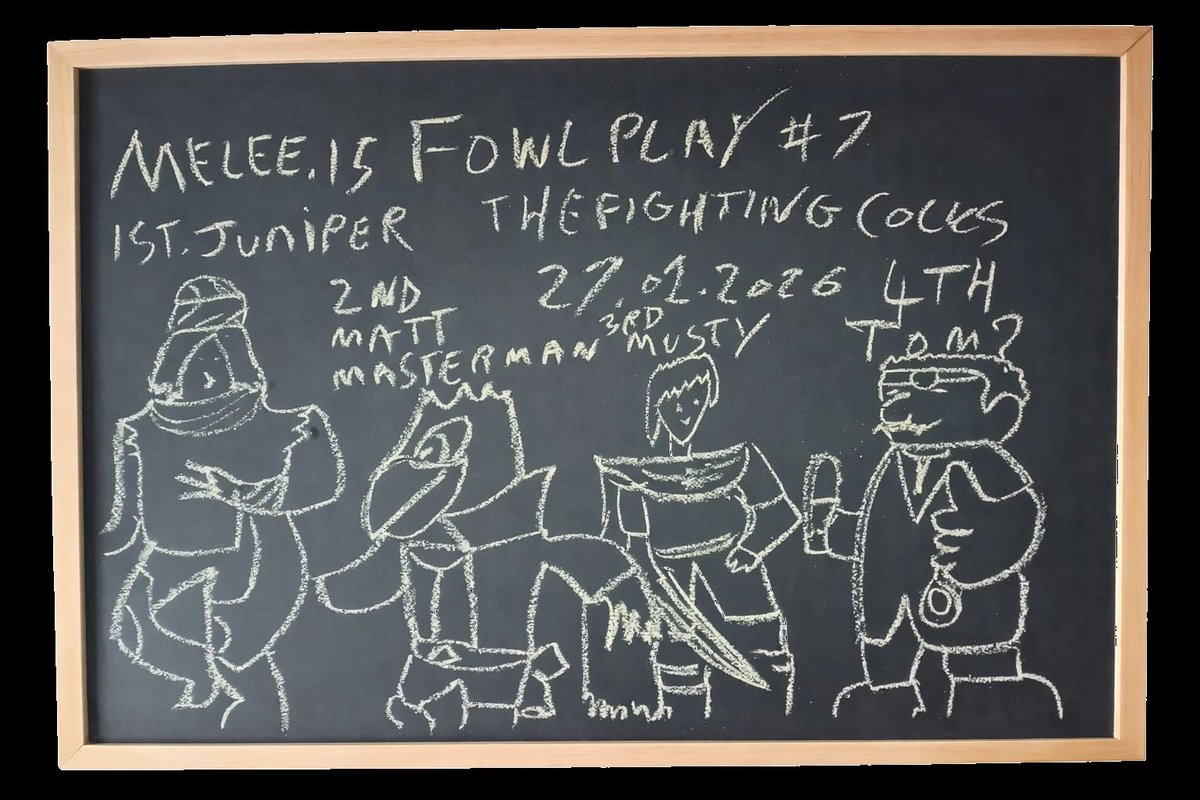 MELEE.IS FOWL PLAY #7
1ST. JUNIPER THE FIGHTING COCKS
27.02.2026
2ND
MATT
MASTERMAN
3RD
MUSTY
4TH
TOM?